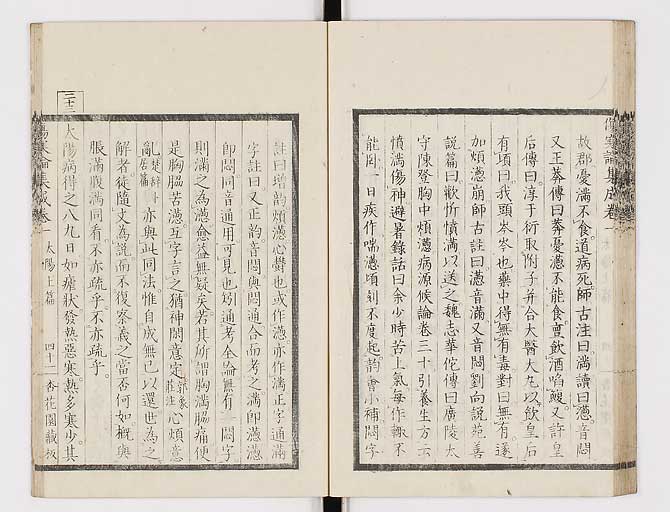 傷寒論集成卷一
故郡憂滿不食道病死師古注曰滿讀曰懣音悶
又王莽傳曰莽憂懣不能食會飲酒啗鰒又許皇
后傳曰淳于衍取附子并合大醫大丸以飲皇后
有頃曰我頭岑岑也藥中得無有毒對曰無有遂
加煩懣崩師古註曰懣音滿又音悶劉向說苑善
說篇曰歡忻憤滿以送之魏志華佗傳曰廣陵太
守陳登胸中煩懣病源候論卷三十引養生方云
憤滿傷神避暑錄話曰余少時苦上氣每作輒不
能臥一日疾作喘懣頃刻不度起韵會小補悶字
註曰增韵煩懣心欝也或作滿亦作滿正字通滿
字註曰又正韵音悶與悶通合而考之滿即懣懣
即悶同音通用可見也矧通考全論無有一悶字
則滿之為懣愈益無疑矣若其所謂胸滿腸痛便
是胸脇苦懣互字言之猶神悶意定郭象莊注心煩意
亂楚辭卜居篇亦與此同法惟自成無已以還世為之
解者徒隨文為說而不復察義之當否何如概與
脹滿腹滿同看不亦疏乎不亦疏乎
二十三太陽病得之八九日如瘧狀發熱惡寒熱多寒少其
傷寒論集成卷一 太陽上篇 四十一 杏花園藏板